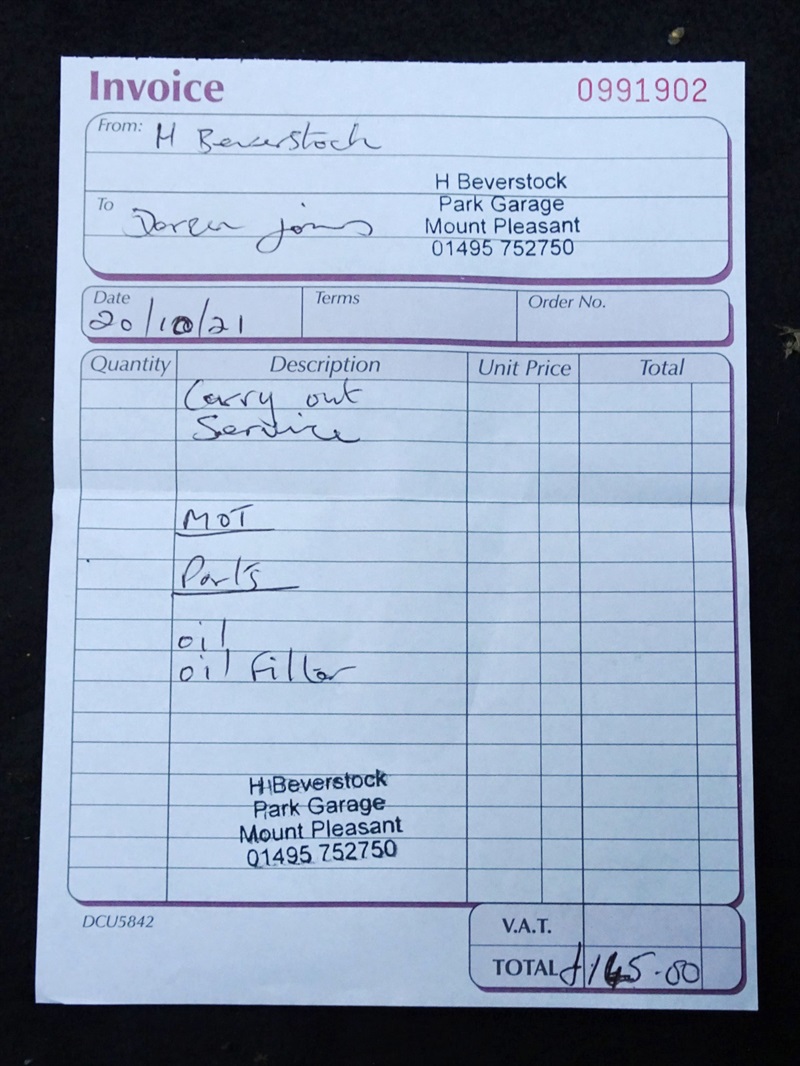 Invoice 0991902
From: H Beverstock
H Beverstock
Park Garage
Mount Pleasant
01495 752750
To Doreen Jones
Date Terms Order No.
20/10/21
Quantity Description Unit Price Total
Carry out
Service
MOT
Parts
oil
oil Filter
H Beverstock
Park Garage
Mount Pleasant
01495 752750
DCU5842
V.A.T.
TOTAL £145.00